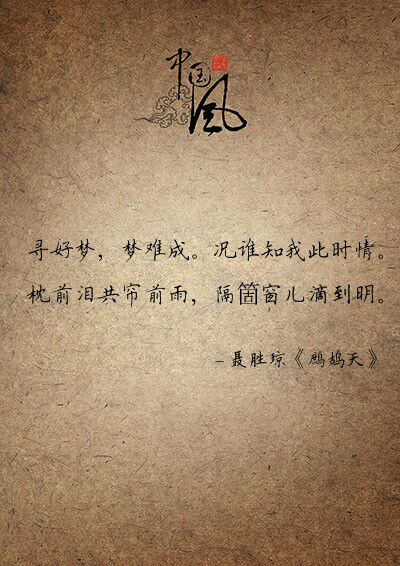 中国风
寻好梦，梦难成。况谁知我此时情。
枕前泪共帘前雨，隔箇窗儿滴到明。
– 聂胜琼《鹧鸪天》